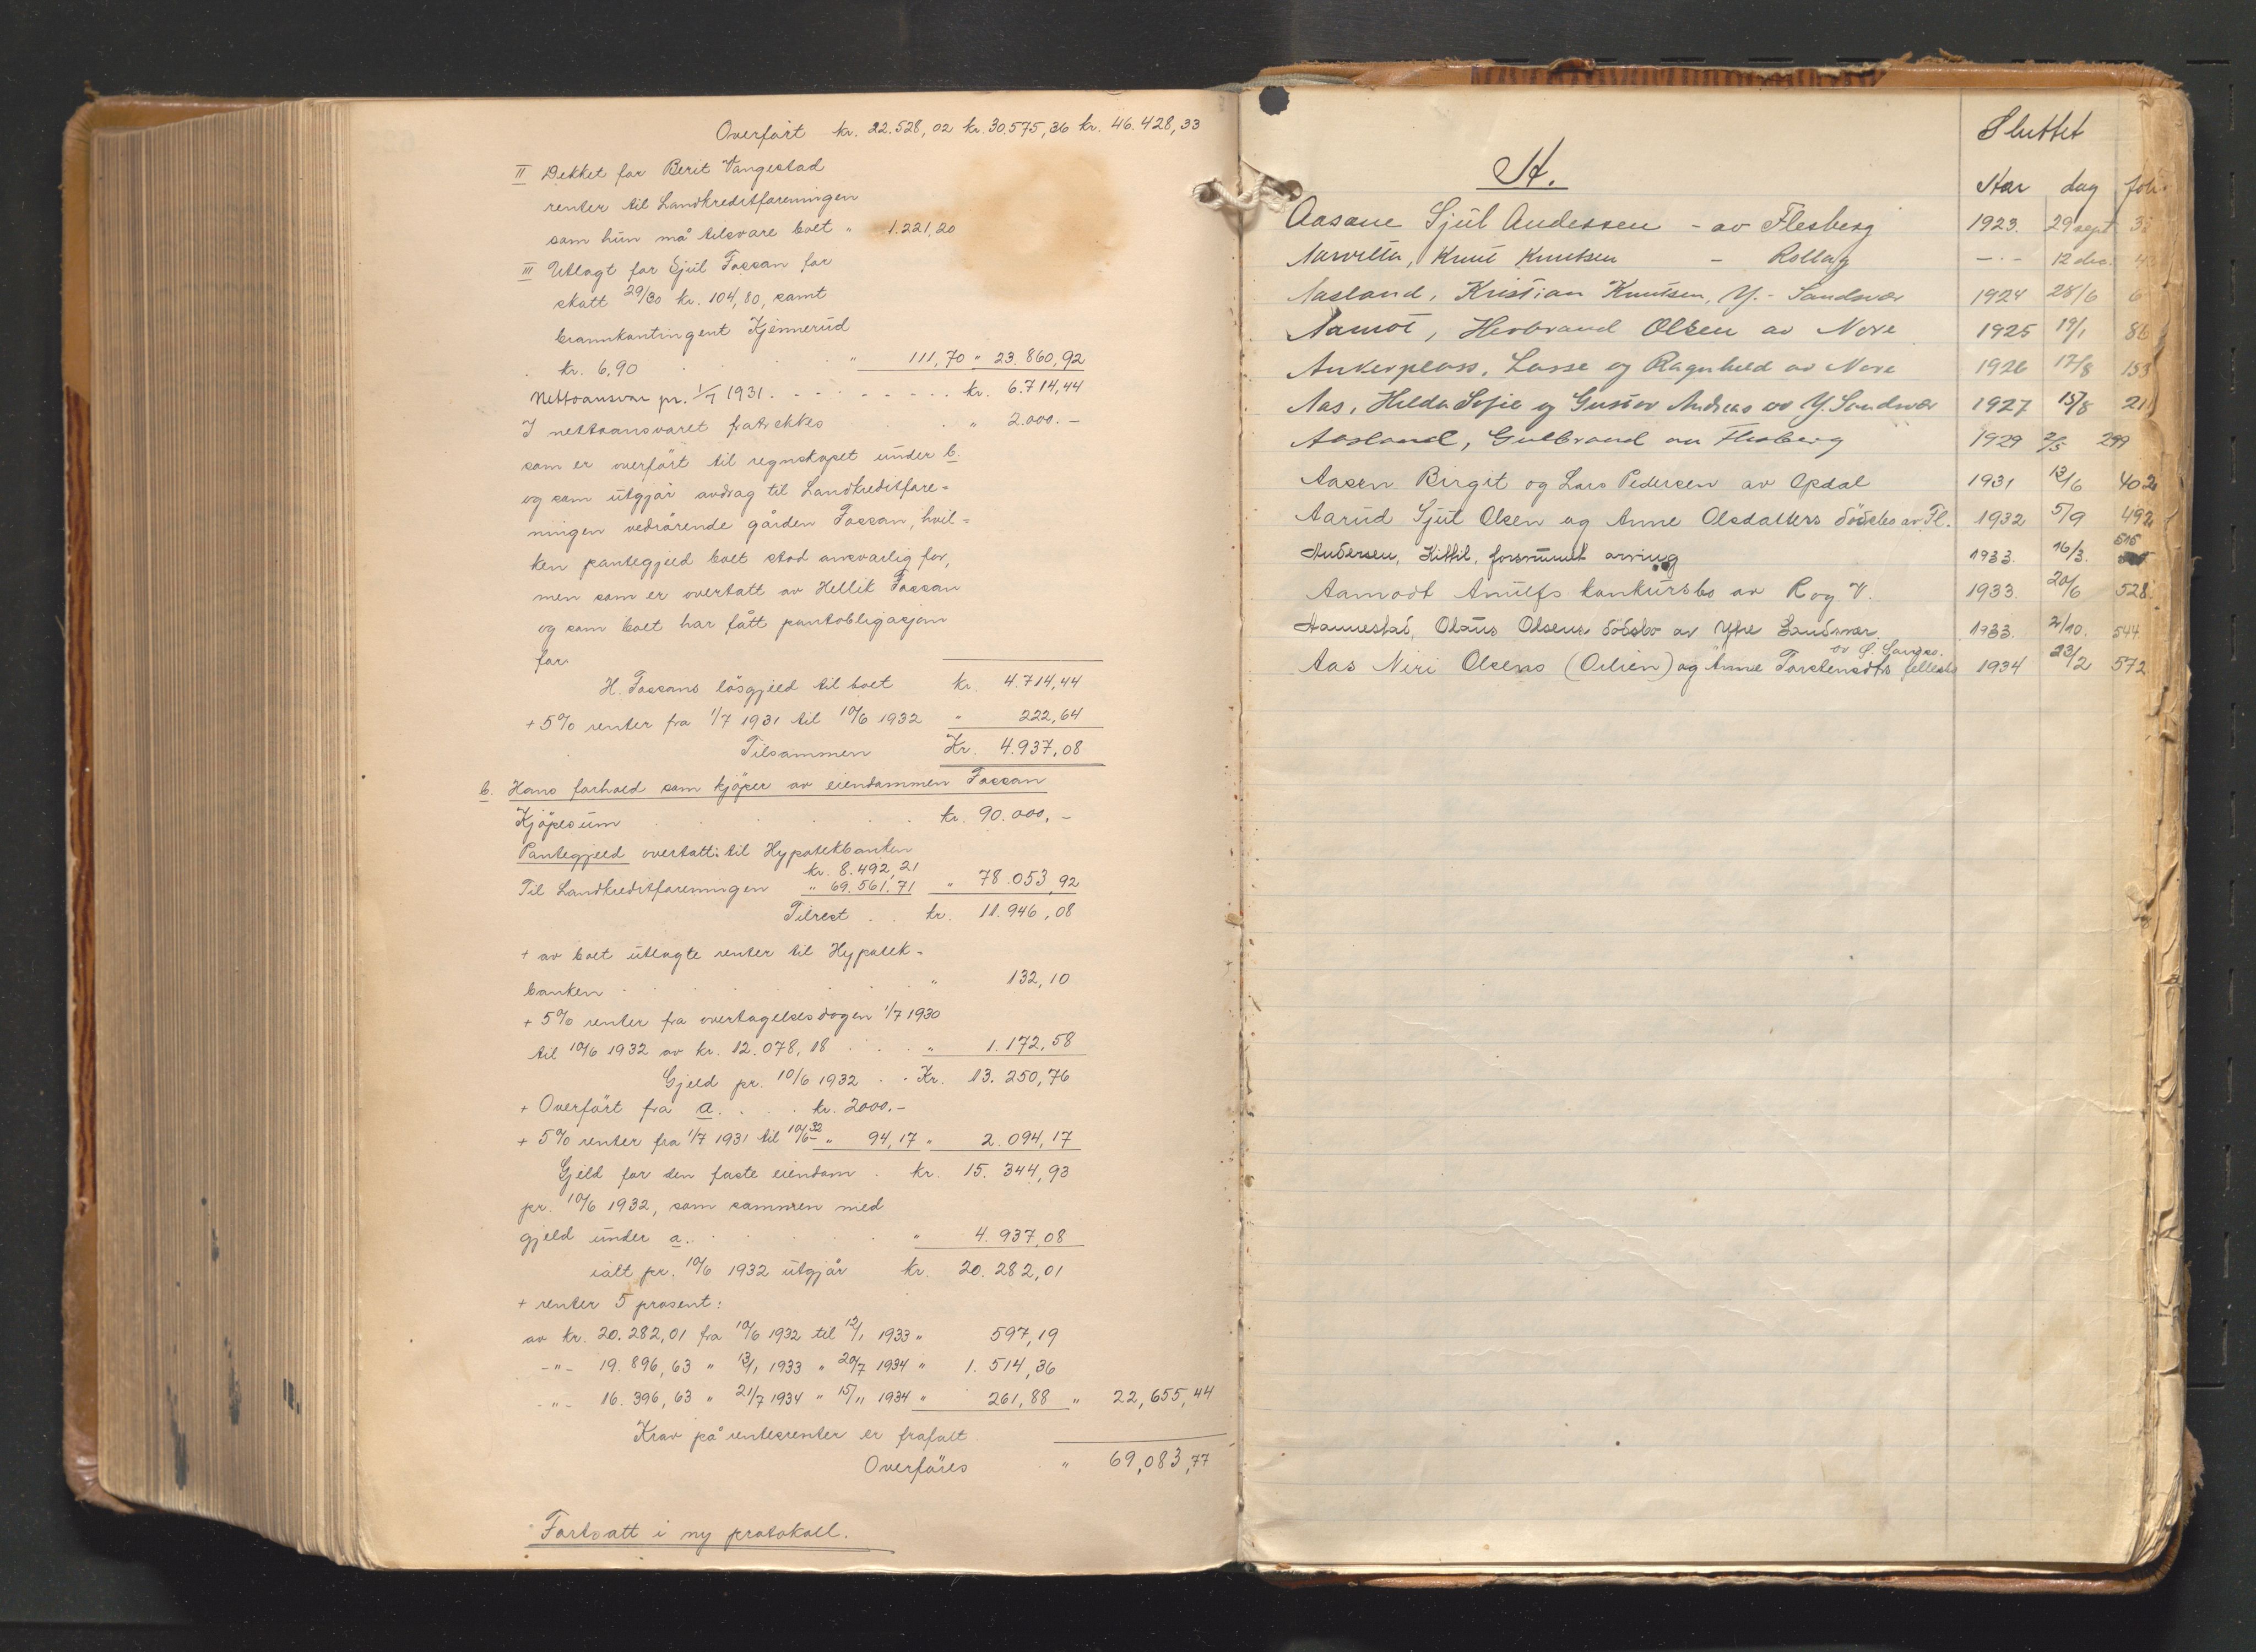 Overført kr. 22.528,02 kr. 30.575,36 kr. 46.428,33
II Dekket for Berit Vangestad
renter til Landkreditforeningen
som hun må tilsvare boet " 1.221,20
III Utlagt for Sjul Fossan for
skatt 29/30 kr. 104,80, samt
brannkontingent Kjennerud
kr. 6,90 " 111,70 " 23.860,92
Nettoansvar pr. 1/7 1931 . . . . kr. 6.714,44
I nettoansvaret fratrekkes " 2.000.-
som er overført til regnskapet under b.
og som utgjør avdrag til Landkreditfore=
ningen vedrørende gården Fossan, hvil=
ken pantegjeld boet stod ansvarlig for,
men som er overtatt av Hellik Fossan
og som boet har fått pantobligasjon
for.
H. Fossans løsgjeld til boet kr. 4.714,44
+ 5% renter fra 1/7 1931 til 10/6 1932 " 222,64
Tilsammen Kr. 4.937,08
b. Hans forhold som kjøper av eiendommen Fossan
Kjøpesum kr. 90.000,-
Pantegjeld overtatt: til Hypotekbanken
kr. 8.492,21
Til Landkreditforeningen " 69.561.71 " 78.053,92
Tilrest . . kr. 11.946,08
+ av boet utlagte renter til Hypotek-
banken " 132,10
+ 5% renter fra overtagelsesdagen 1/7 1930
til 10/6 1932 av kr. 12.078,18 " 1.172,58
Gjeld pr. 10/6 1932 . . Kr. 13.250,76
+ Overført fra a. . . . kr. 2000.-
+ 5% renter fra 1/7 1931 til 10/6 32 " 94,17 " 2.094,17
Gjeld for den faste eiendom . kr. 15.344,93
pr. 10/6 1932, som sammen med
gjeld under a. " 4.937,08
ialt pr. 10/6 1932 utgjør kr. 20.282,01
+ renter 5 prosent:
av kr. 20.282,01 fra 10/6 1932 til 12/1 1933 " 597,19
-"- 19.896,63 " 13/1 1933 " 20/7 1934 " 1.514,36
-"- 16.396,63 " 21/7 1934 " 15/11 1934 " 261,88 " 22,655,44
Krav på rentesrenter er frafalt
Overføres " 69,083,77
Fortsatt i ny protokoll.
Sluttet
A.
Aar dag fol.
Aasane Sjul Andersen - av Flesberg 1923. 29 sept
Knut Knutsen - Rollag -.- 12 des.
Aasland, Kristian Knutsen, Y.- Sandsvær 1924 28/6 6
Aamot, Herbrand Olsen av Nore 1925 19/1 86
Ankerplass, Lasse og Ragnhild av Nore 1926 17/8 153
Aas, Hilda Sofie og Gustav Andreas av Y. Sandsvær 1927 15/8 21
Aasland, Gulbrand av Flesberg 1929 2/5 299
Aasen Birgit og Lars Pedersen av Opdal 1931 13/6 402
Aarud Sjul Olsen og Anne Olsdatters dødsbo av Fl. 1932 5/9 492
Andersen, Kittil, forsvunnet arving 1933. 16/3. 515
Aamodt Arnulfs konkursbo av R og V. 1933. 20/6 528
Aannestad, Olaus Olsens dødsbo av Ytre Sandsvær. 1933. 2/10. 544
Aas Niri Olsens (Odlien) og Anne Torstensdtrs fellesbo 1934 23/2 572